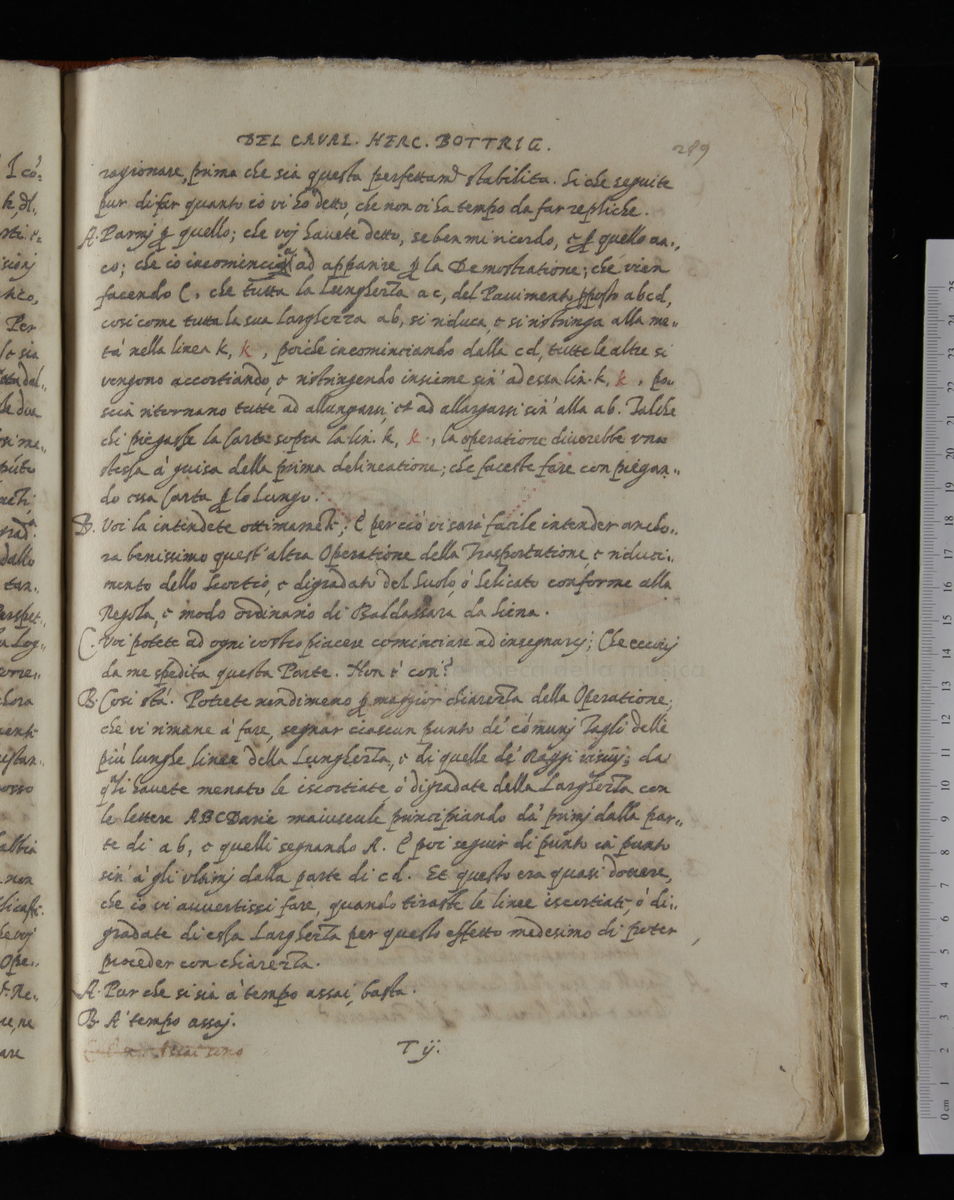 DEL CAVAL. HERC. BOTTRIG.
289
ragionare, prima che sia questa perfettamẽ stabilita. Si che seguite
pur di far quanto io vi hò detto, che non vi ha tempo da far repliche.
A. Parmj ꝑ quello; che voj havete detto, se ben mi ricordo, e ꝑ quello an.,
co; che io incomincio ad apparire ꝑ la Demostratione; che vien
facendo C. che tutta la Lunghezza ac, del Pavimento pposto abcd,
cosi come tutta la sua Larghezza ab, si riduca, e si ristringa alla me„
tà nella linea k, k, poiche incominciando dalla cd, tutte le altre si
vengono accortiando, e ristringendo insieme sin' ad essa lin. k, k, po„
scia ritornano tutte ad allungarsi, et ad allargarsi sin' alla ab. Talche
chi piegasse la Carta sopra la lin. k, k, la operatione diverebbe una
stessa à guisa della prima delineatione; che faceste fare con piegan„
do essa Carta ꝑ lo Lungo.
B. Voi la intendete ottimamẽte; E perciò vi sarà facile intender ancho„
ra benissimo quest' altra Operatione della Trasportatione, e riduci„
mento dello Scortio, e digradato del Suolo, ò Selicato conforme alla
Regola, e modo ordinario di Baldassara da Siena.
C. Voi potete ad ogni vostro piacere cominciare ad insegnarcj; Che eccovj
da me spedita questa Parte. Non è cosi?
B. Cosi stà. Potrete nondimeno ꝑ maggior chiarezza della Operatione,
che vi rimane à fare, segnar ciascun punto de' cõmunj Tagli delle
più lunghe linee della Lunghezza, e di quelle de' Raggi visivj; da
q̃li havete menato le iscortiate ò digradate della Larghezza con
le lettere ABCDarie maiuscule principiando dà primj dalla par„
te di ab, e quelli segnando A. E poi seguir di punto in punto
sin' à gli ultimj dalla parte di cd. Et questo era quasi dovere,
che io vi avvertissi fare, quando tiraste le linee iscortiate, ò di„
gradate di essa Larghezza per questo effetto medesimo di poter
proceder con chiarezza.
A. Pur che si sia à tempo assai, basta.
B. A tempo assaj.
T ij.